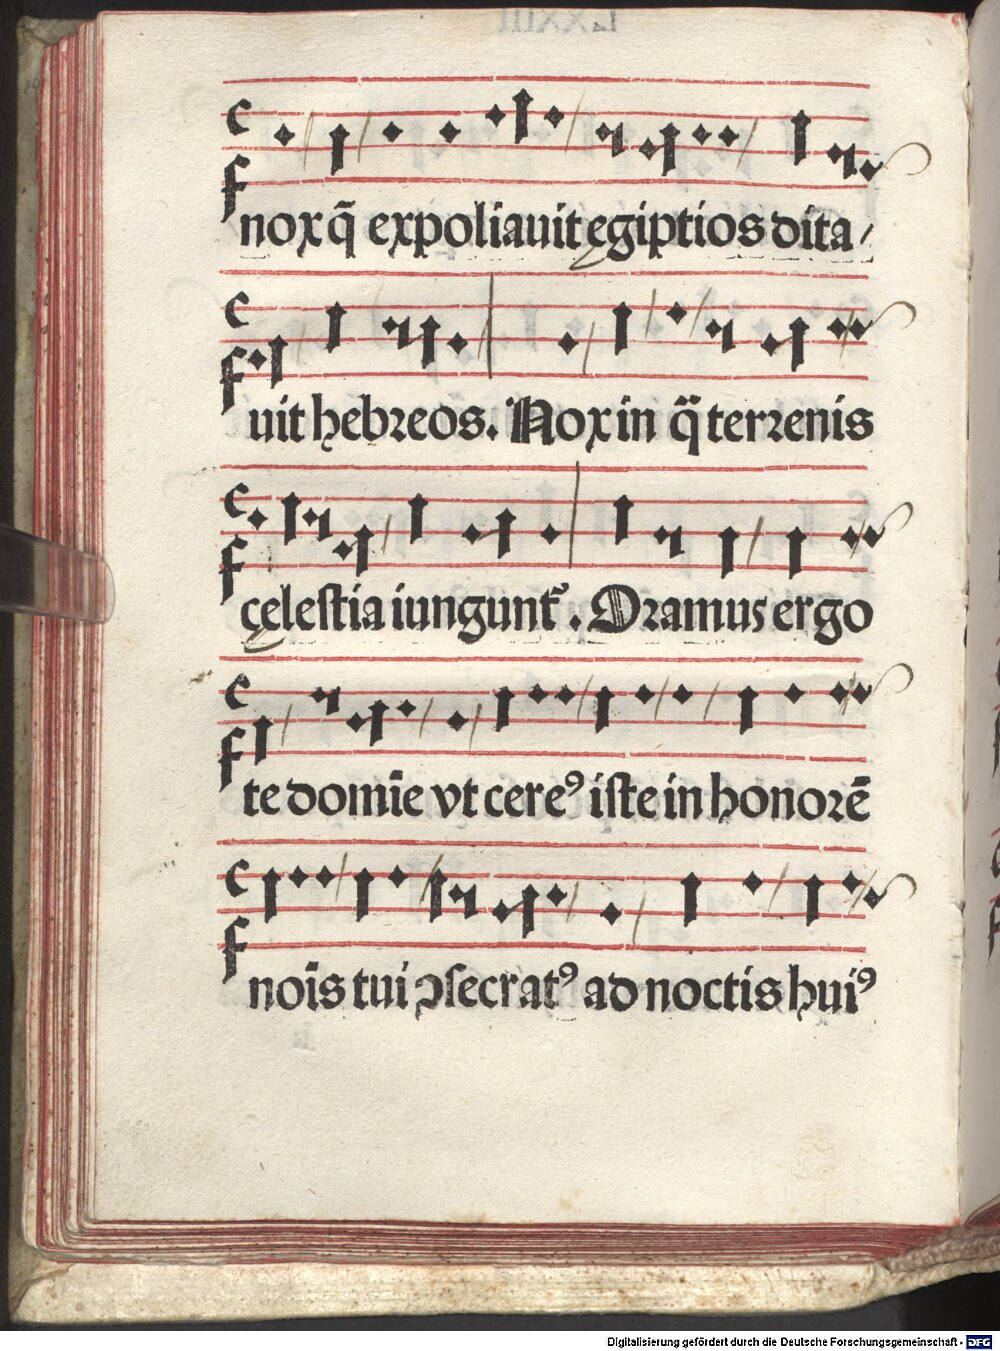 noxq̄ expoliauit ęgiptios dita/
uit hebreos. Nox in q̄ terrenis
cęlestia iungunt᷑. Oramus ergo
te domīe vt cereꝰ iste in honorē
noīs tui ↄsecratꝰ ad noctis huiꝰ
Digitalisierung gefördert durch die Deutsche Forschungsgemeinschaft - DFG